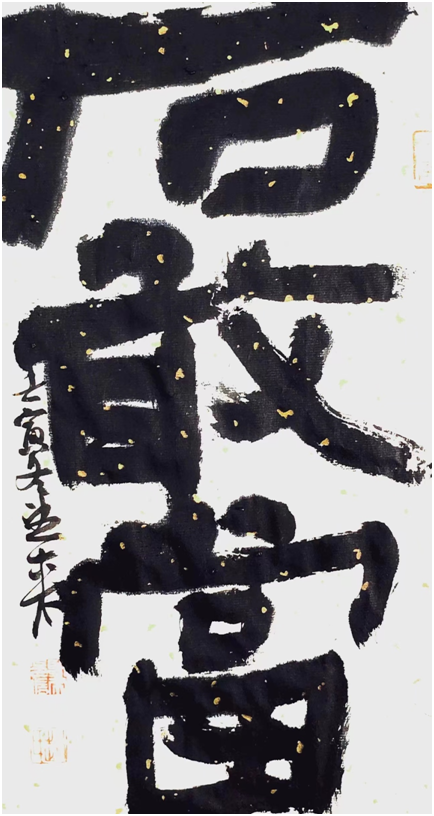 石敢當
壬寅冬